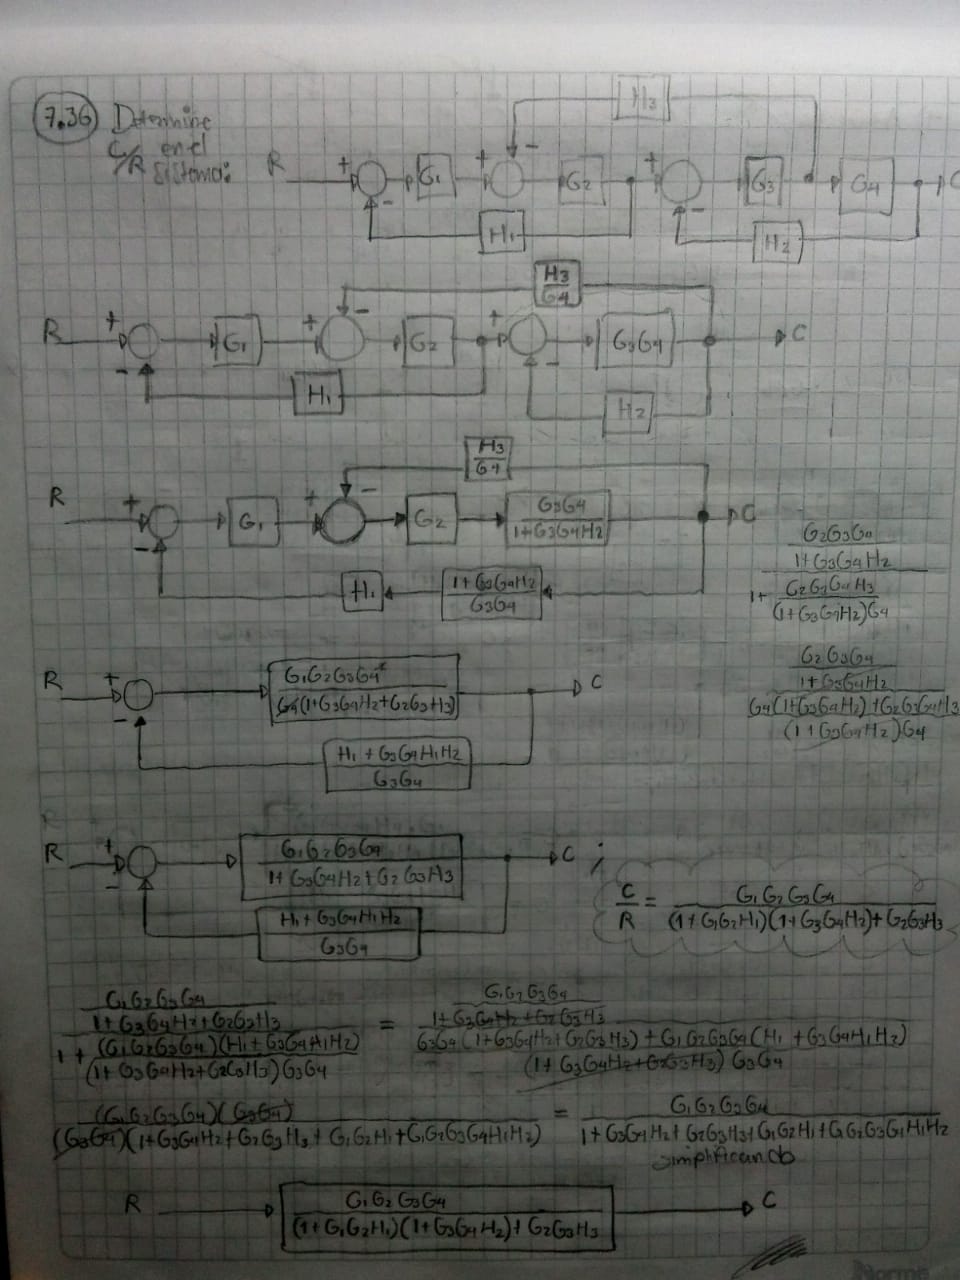 7.36 Determine
C/R en el
sistema:
R + - G1 + - G2 + - G3 G4 C
H3
H1
H2
H3/G4
R + - G1 + - G2 + - G3G4 C
H1
H2
H3/G4
R + - G1 + - G2 G3G4/1+G3G4H2 C
H1 1+G3G4H2/G3G4
G2G3G4
1+G3G4H2
1+ G2G3G4H3
(1+G3G4H2)G4
G2G3G4
1+G3G4H2
G4(1+G3G4H2)+G2G3G4H3
(1+G3G4H2)G4
R + - G1G2G3G4 C
G4(1+G3G4H2+G2G3H3)
H1+G3G4H1H2
G3G4
R + - G1G2G3G4 C ;
1+G3G4H2+G2G3H3
H1+G3G4H1H2
G3G4
C/R = G1G2G3G4
(1+G1G2H1)(1+G3G4H2)+G2G3H3
G1G2G3G4
1+G3G4H2+G2G3H3
1+ (G1G2G3G4)(H1+G3G4H1H2)
(1+G3G4H2+G2G3H3)G3G4
= G1G2G3G4
1+G3G4H2+G2G3H3
G3G4(1+G3G4H2+G2G3H3)+G1G2G3G4(H1+G3G4H1H2)
(1+G3G4H2+G2G3H3)G3G4
(G1G2G3G4)(G3G4)
(G3G4)(1+G3G4H2+G2G3H3+G1G2H1+G1G2G3G4H1H2)
= G1G2G3G4
1+G3G4H2+G2G3H3+G1G2H1+G1G2G3G4H1H2
simplificando
R G1G2G3G4 C
(1+G1G2H1)(1+G3G4H2)+G2G3H3
Norma